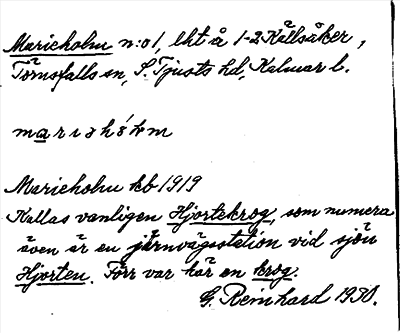 Marieholm n:o 1, lht å 1-2 Källsåker,
Törnsfalls sn, S. Tjusts hd, Kalmar l.
Marieholm kb 1919
Kallas vanligen Hjortekrog, som numera
även är en järnvägsstation vid sjön
Hjorten. Förr var här en krog.
G. Reinhard 1930.